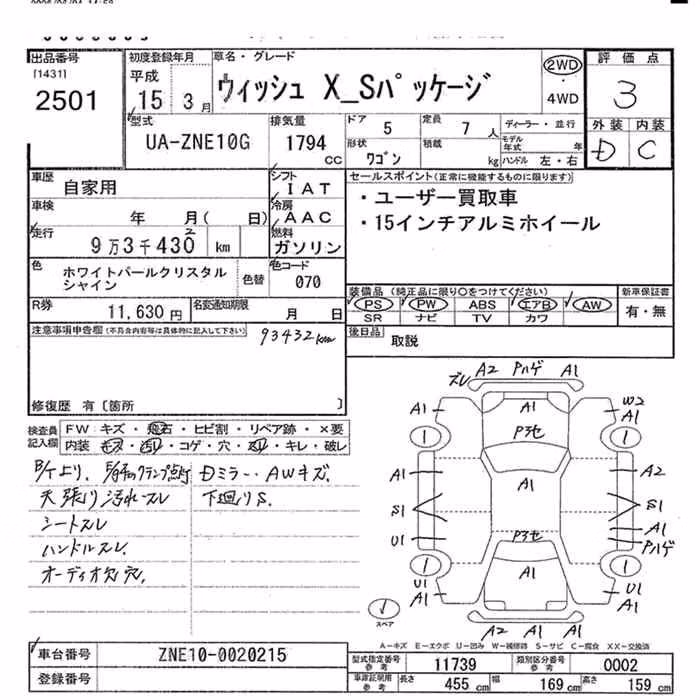 出品番号
[1431]
2501
初度登録年月
平成
15 3月
車名・グレード
ウィッシュ X_Sパッケージ
2WD
・
4WD
評価点
3
外装 内装
D C
型式
UA-ZNE10G
排気量
1794
CC
ドア 5
定員 7人
ディーラー・並行
形状 ワゴン
積載 kg
モデル年式 年
ハンドル 左・右
車歴 自家用
シフト IAT
車検 年 月( 日)
冷房 AAC
走行 9万3千430 2 km
燃料 ガソリン
色 ホワイトパールクリスタルシャイン
色替
色コード 070
R券 11,630円
名変通知期限 月 日
セールスポイント(正常に機能するものに限ります)
・ユーザー買取車
・15インチアルミホイール
装備品(純正品に限り○をつけてください)
新車保証書
PS PW ABS エアB AW
SR ナビ TV カワ
有・無
後日品 取説
注意事項申告欄(不具合内容等は具体的に記入して下さい)
93432km
修復歴 有〔箇所 〕
検査員記入欄
FW キズ・飛石・ヒビ割・リペア跡・×要
内装・キズ・汚れ・コゲ・穴・スレ・キレ・破レ
Dミラー・AWキズ
天張り汚れスレ 下廻りS.
シートスレ
ハンドルスレ.
オーディオ欠穴.
ズレ A2 Pハゲ A1
A1 A1 W2 A1
1 1
P3セ
A1 A1 A2
S1 S1
U1 A1
Pハゲ
P3セ
1 A1 1
U1 A1 U1 A1
A2 A1 A1
1
スペア
A-キズ E-エクボ U-凹み W-補修跡 S-サビ C-腐食 XX-交換済
車台番号 ZNE10-0020215
登録番号
型式指定番号 参考 11739
類別区分番号 参考 0002
車庫証明用 参考 長さ 455cm 幅 169cm 高さ 159cm